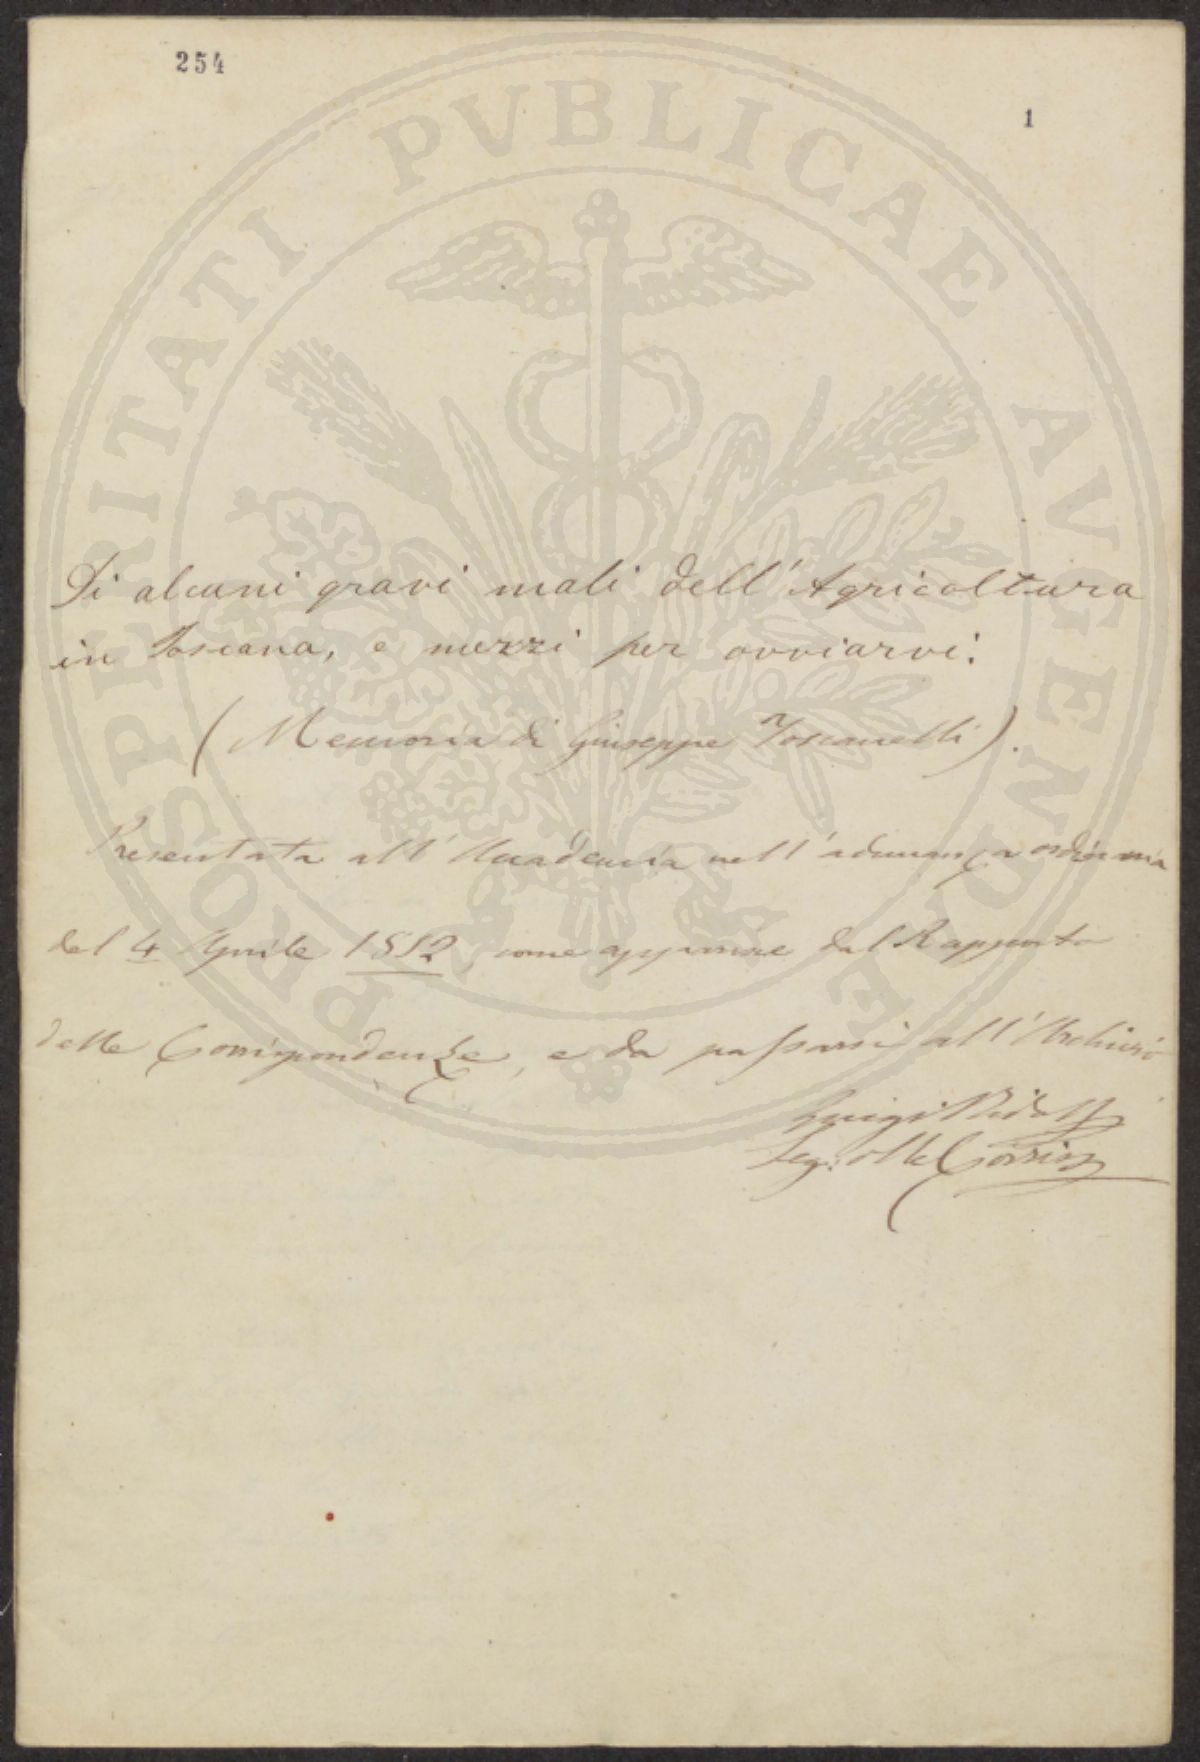 254
1
PROSPERITATI PVBLICAE AVGENDAE
Di alcuni gravi mali dell'Agricoltura
in Toscana, e mezzi per ovviarvi.
(Memoria di Giuseppe Toscanelli).
Presentata all'Accademia nell'adunanza ordinaria
del 4 Aprile 1852, come apparisce dal Rapporto
delle Corrispondenze, e da passarsi all'Archivio
Luigi Ridolfi
Seg: delle Corrisp